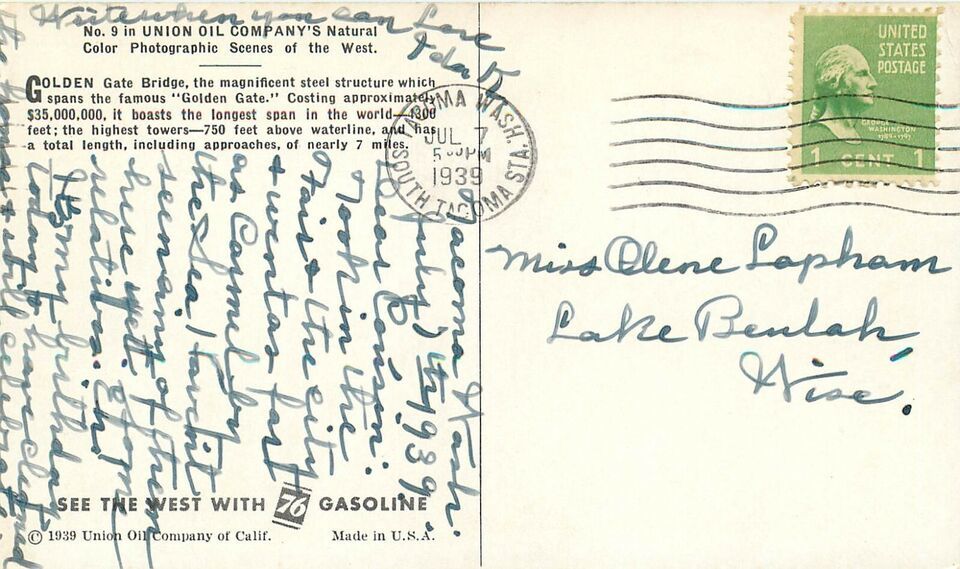 Write when you can Love
Ida K
No. 9 in UNION OIL COMPANY'S Natural
Color Photographic Scenes of the West.
GOLDEN Gate Bridge, the magnificent steel structure which
spans the famous "Golden Gate." Costing approximately
$35,000,000, it boasts the longest span in the world—4300
feet; the highest towers—750 feet above waterline, and has
a total length, including approaches, of nearly 7 miles.
TACOMA WASH.
JUL 7
PM
1939
SOUTH TACOMA STA.
UNITED
STATES
POSTAGE
GEORGE
WASHINGTON
1789-1797
1 CENT 1
Miss Olene Lapham
Lake Beulah
Wisc.
Tacoma Wash.
July 7th 1939.
Dear Cousin:
Took in the
Fair & the city
& went as far
as Carmel by
the Sea. I an't
seen any of them
here yet. Some
relatives. Its
my birthday
today
SEE THE WEST WITH 76 GASOLINE
© 1939 Union Oil Company of Calif.
Made in U.S.A.